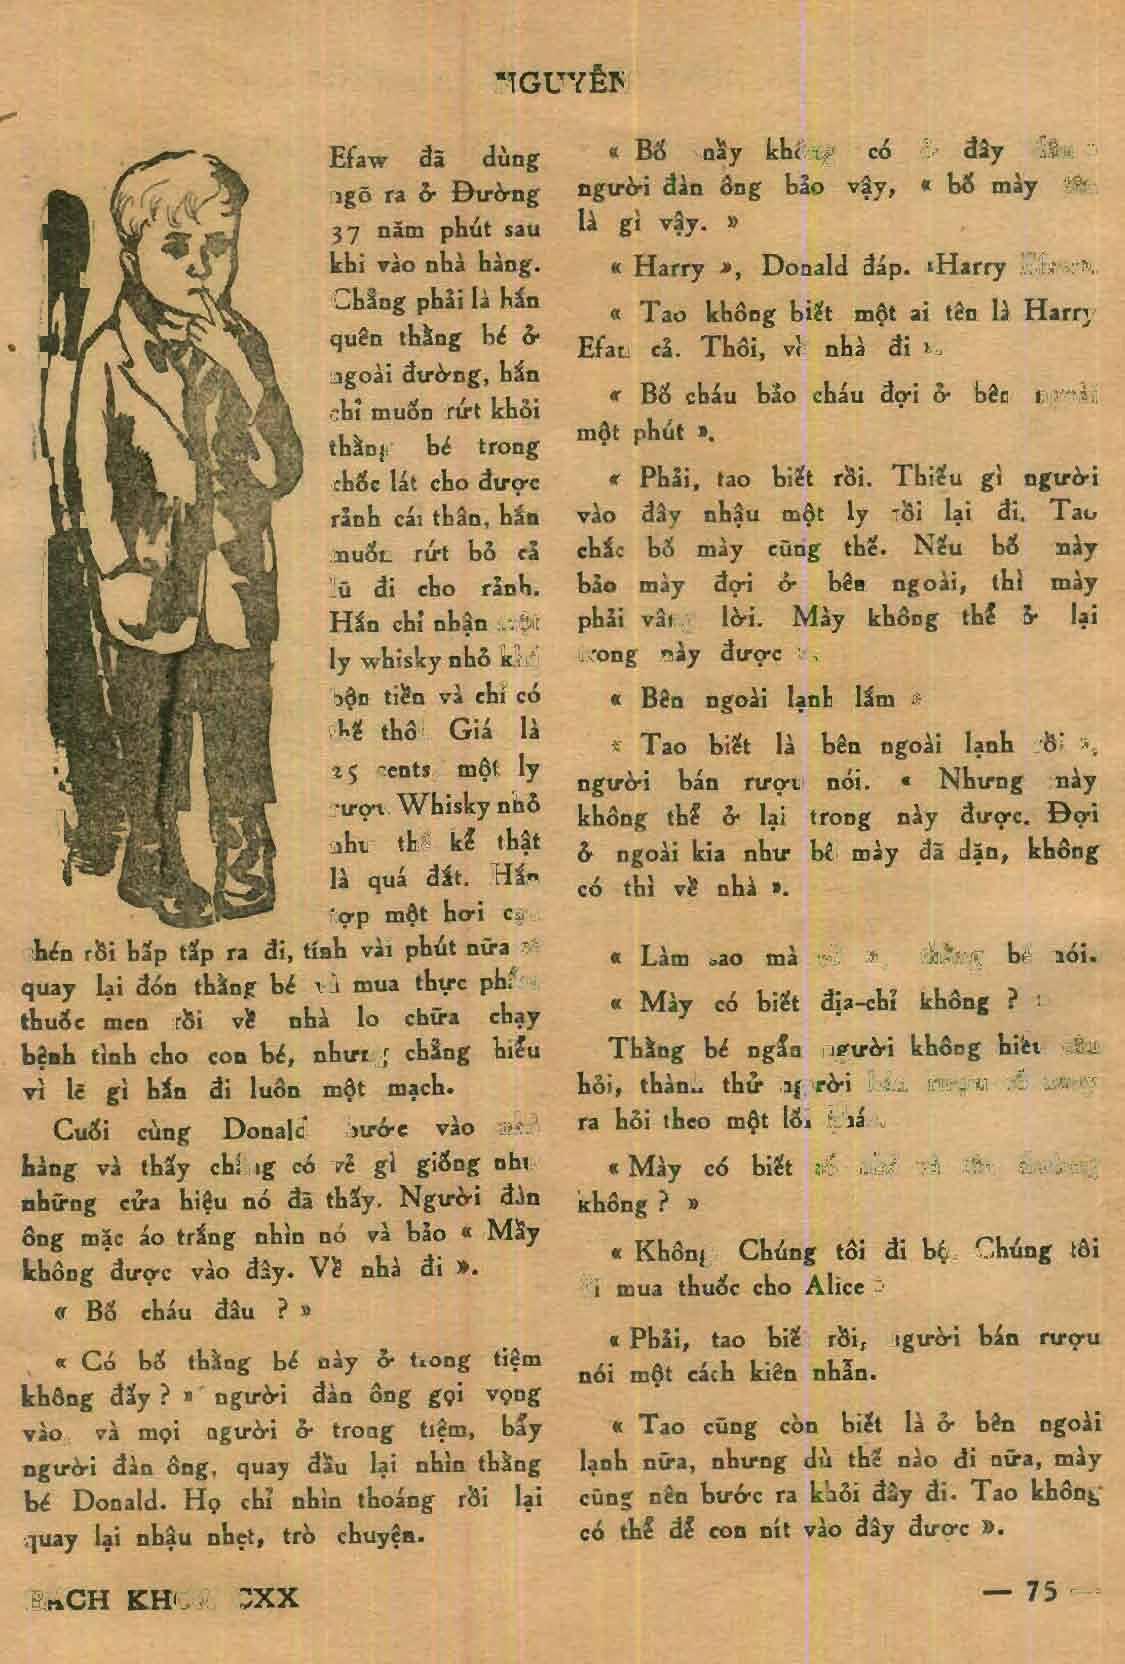 NGUYỄN
Efaw đã dùng
ngõ ra ở Đường
37 năm phút sau
khi vào nhà hàng.
Chẳng phải là hắn
quên thằng bé ở
ngoài đường, hắn
chỉ muốn rứt khỏi
thằng bé trong
chốc lát cho được
rảnh cái thân, hắn
muốn rứt bỏ cả
lũ đi cho rảnh.
Hắn chỉ nhận một
ly whisky nhỏ khá
bộn tiền và chỉ có
thế thôi Giá là
25 cents một ly
rượu. Whisky nhỏ
như thế kể thật
là quá đắt. Hắn
hợp một hơi cạn
chén rồi hấp tấp ra đi, tính vài phút nữa sẽ
quay lại đón thằng bé và mua thực phẩm
thuốc men rồi về nhà lo chữa chạy
bệnh tình cho con bé, nhưng chẳng hiểu
vì lẽ gì hắn đi luôn một mạch.
Cuối cùng Donald bước vào nhà
hàng và thấy chẳng có vẻ gì giống như
những cửa hiệu nó đã thấy. Người đàn
ông mặc áo trắng nhìn nó và bảo « Mầy
không được vào đây. Về nhà đi ».
« Bố cháu đâu ? »
« Có bố thằng bé này ở trong tiệm
không đấy ? » người đàn ông gọi vọng
vào, và mọi người ở trong tiệm, bẩy
người đàn ông, quay đầu lại nhìn thằng
bé Donald. Họ chỉ nhìn thoáng rồi lại
quay lại nhậu nhẹt, trò chuyện.
« Bố nầy không có ở đây đâu »
người đàn ông bảo vậy, « bố mày tên
là gì vậy. »
« Harry », Donald đáp. «Harry Efaw».
« Tao không biết một ai tên là Harry
Efaw cả. Thôi, về nhà đi ».
« Bố cháu bảo cháu đợi ở bên ngoài
một phút ».
« Phải, tao biết rồi. Thiếu gì người
vào đây nhậu một ly rồi lại đi. Tao
chắc bố mày cũng thế. Nếu bố này
bảo mày đợi ở bên ngoài, thì mày
phải vâng lời. Mày không thể ở lại
trong này được ».
« Bên ngoài lạnh lắm »
« Tao biết là bên ngoài lạnh rồi »,
người bán rượu nói. « Nhưng này
không thể ở lại trong này được. Đợi
ở ngoài kia như bố mày đã dặn, không
có thì về nhà ».
« Làm sao mà về », thằng bé nói.
« Mày có biết địa-chỉ không ? »
Thằng bé ngẩn người không hiểu câu
hỏi, thành thử người bán rượu cố xoay
ra hỏi theo một lối khác.
« Mày có biết số nhà và tên đường
không ? »
« Không Chúng tôi đi bộ. Chúng tôi
đi mua thuốc cho Alice »
« Phải, tao biết rồi, người bán rượu
nói một cách kiên nhẫn.
« Tao cũng còn biết là ở bên ngoài
lạnh nữa, nhưng dù thế nào đi nữa, mày
cũng nên bước ra khỏi đây đi. Tao không
có thể để con nít vào đây được ».
BÁCH KHOA CXX
— 75 —